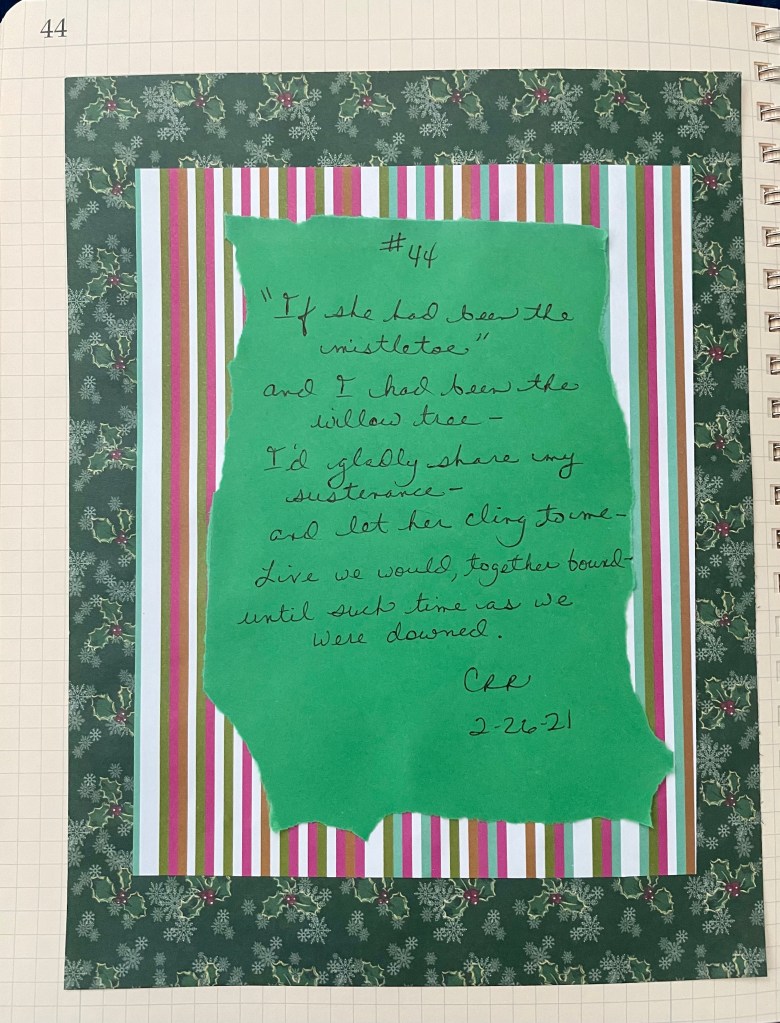 44
#44
"If she had been the
mistletoe"
and I had been the
willow tree -
I'd gladly share my
sustenance -
and let her cling to me -
Live we would, together bound -
until such time as we
were downed.
CRR
2-26-21